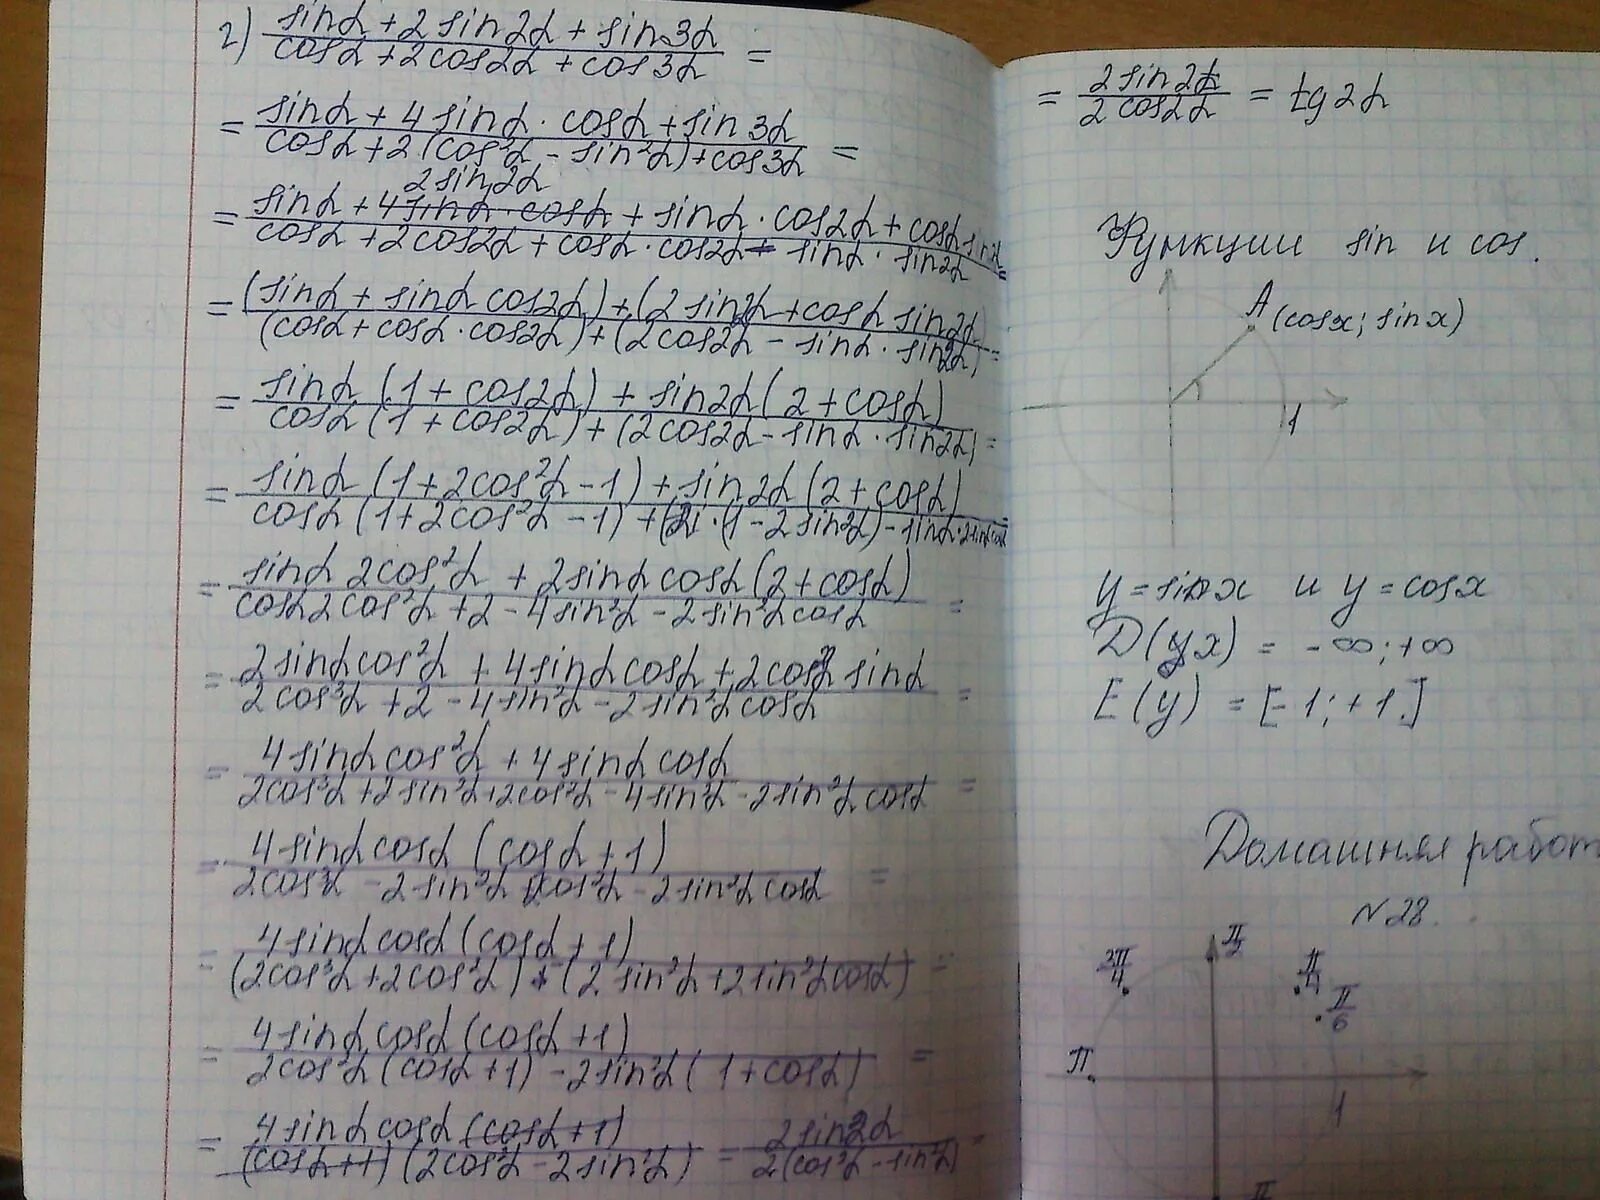 г) (sinα + 2 sin2α + sin3α)/(cosα + 2cos2α + cos3α) =
= (sinα + 4 sinα · cosα + sin3α)/(cosα + 2(cos²α - sin²α) + cos3α) =
2 sin2α
= (sinα + 4sinα · cosα + sinα · cos2α + cosα sin2α)/(cosα + 2cos2α + cosα · cos2α - sinα · sin2α) =
= ((sinα + sinα cos2α) + (2 sin2α + cosα sin2α))/((cosα + cosα · cos2α) + (2cos2α - sinα · sin2α)) =
= (sinα (1 + cos2α) + sin2α (2 + cosα))/(cosα (1 + cos2α) + (2cos2α - sinα · sin2α)) =
= (sinα (1 + 2cos²α - 1) + sin2α (2 + cosα))/(cosα (1 + 2cos²α - 1) + (2 · (1 - 2 sin²α) - sinα · 2sinα cosα) =
= (sinα 2cos²α + 2sinα cosα (2 + cosα))/(cosα 2cos²α + 2 - 4 sin²α - 2 sin²α cosα) =
= (2sinα cos²α + 4sinα cosα + 2cos²α sinα)/(2cos³α + 2 - 4 sin²α - 2 sin²α cosα) =
= (4sinα cos²α + 4sinα cosα)/(2cos³α + 2sin²α + 2cos²α - 4sin²α - 2sin²α cosα) =
= (4sinα cosα (cosα + 1))/(2cos³α - 2 sin²α 2cos²α - 2 sin²α cosα) =
= (4sinα cosα (cosα + 1))/((2cos³α + 2cos²α) - (2 sin²α + 2sin²α cosα)) =
= (4sinα cosα (cosα + 1))/(2cos²α (cosα + 1) - 2sin²α (1 + cosα)) =
= (4sinα cosα (cosα + 1))/((cosα + 1) (2cos²α - 2sin²α)) = (2sin2α)/(2(cos²α - sin²α)) =
= (2 sin2α)/(2 cos2α) = tg2α
Функции sin и cos.
A (cosx; sinx)
1
y = sinx и y = cosx
D(yx) = -∞; +∞
E(y) = [-1; +1.]
Домашняя работ
N28.
π/2
3π/4
π/4
π/6
π
1
π